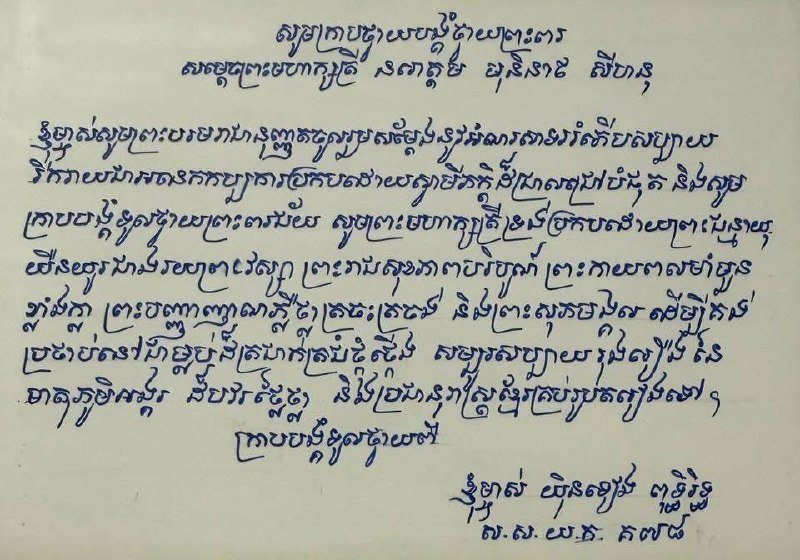 សូមក្រាបថ្វាយបង្គំថ្វាយព្រះពរ
សម្តេចព្រះមហាក្សត្រី នរោត្តម មុនិនាថ សីហនុ
ខ្ញុំម្ចាស់សូមព្រះបរមរាជានុញ្ញាតចូលរួមសម្តែងនូវអំណរសាទររំភើបសប្បាយ
រីករាយជាអនេកកប្បការប្រកបដោយស្វាមីភក្តិដ៏ជ្រាលជ្រៅបំផុត និងសូម
ក្រាបបង្គំទូលថ្វាយព្រះពរជ័យ សូមព្រះមហាក្សត្រីទ្រង់ប្រកបដោយព្រះជន្មាយុ
យឺនយូរជាងរយព្រះវស្សា ព្រះរាជសុខភាពបរិបូណ៌ ព្រះកាយពលមាំមួន
ខ្លាំងក្លា ព្រះបញ្ញាញាណភ្លឺថ្លាត្រចះត្រចង់ និងព្រះសុភមង្គល ដើម្បីគង់
ប្រថាប់នៅជាម្លប់ដ៏ត្រជាក់ត្រជំថ្កុំថ្កើង សម្បូរសប្បាយ រុងរឿង នៃ
មាតុភូមិអង្គរ ដ៏បវរថ្លៃថ្លា និងប្រជានុរាស្ត្រខ្មែរគ្រប់រូបតរៀងទៅ។
ក្រាបបង្គំទូលថ្វាយពី
ខ្ញុំម្ចាស់ យ៉ិនទៀង ពុទ្ធិរិទ្ធ
ស.ស.យ.ក. គ៧៨